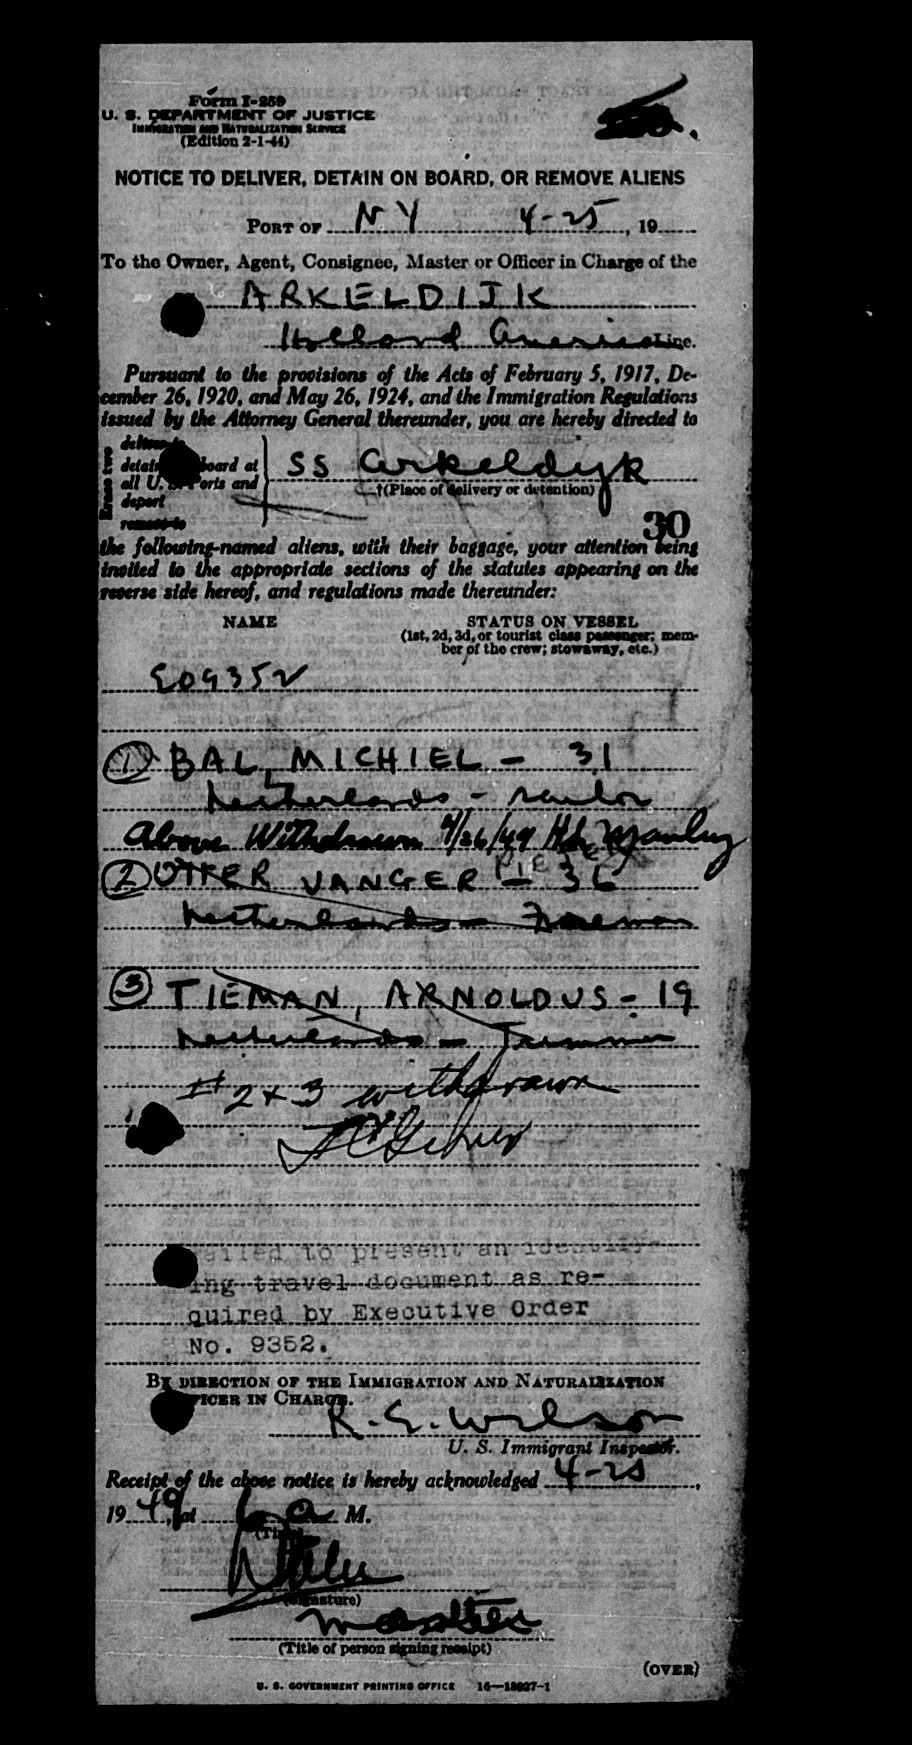 Form I-259
U. S. DEPARTMENT OF JUSTICE
IMMIGRATION AND NATURALIZATION SERVICE
(Edition 2-1-44)
NOTICE TO DELIVER, DETAIN ON BOARD, OR REMOVE ALIENS
PORT OF NY 4-25, 19
To the Owner, Agent, Consignee, Master or Officer in Charge of the
ARKELDIJK
Holland America Line.
Pursuant to the provisions of the Acts of February 5, 1917, De-
cember 26, 1920, and May 26, 1924, and the Immigration Regulations
issued by the Attorney General thereunder, you are hereby directed to
Erase two
deliver to
detain board at
all U. S. Ports and
deport
remove to
SS Arkeldyk
†(Place of delivery or detention)
30
the following-named aliens, with their baggage, your attention being
invited to the appropriate sections of the statutes appearing on the
reverse side hereof, and regulations made thereunder:
NAME STATUS ON VESSEL
(1st, 2d, 3d, or tourist class passenger; mem-
ber of the crew; stowaway, etc.)
EO9352
1 BAL, MICHIEL - 31
Netherlands - sailor
Above Withdrawn 4/26/49
2 OTTER VANGER PIETER - 36
Netherlands - Fireman
3 TIEMAN, ARNOLDUS - 19
Netherlands - Trimmer
# 2 + 3 withdrawn
Failed to present an identify-
ing travel document as re-
quired by Executive Order
No. 9352.
BY DIRECTION OF THE IMMIGRATION AND NATURALIZATION
OFFICER IN CHARGE.
R. E. Wilson
U. S. Immigrant Inspector.
Receipt of the above notice is hereby acknowledged 4-25,
1949, at 6 a M.
(Time)
(Signature)
master
(Title of person signing receipt)
(OVER)
U. S. GOVERNMENT PRINTING OFFICE 16—13027-1